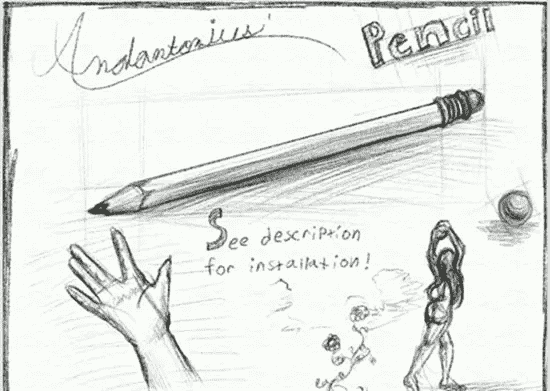 Andantonius'
Pencil
See description
for installation!